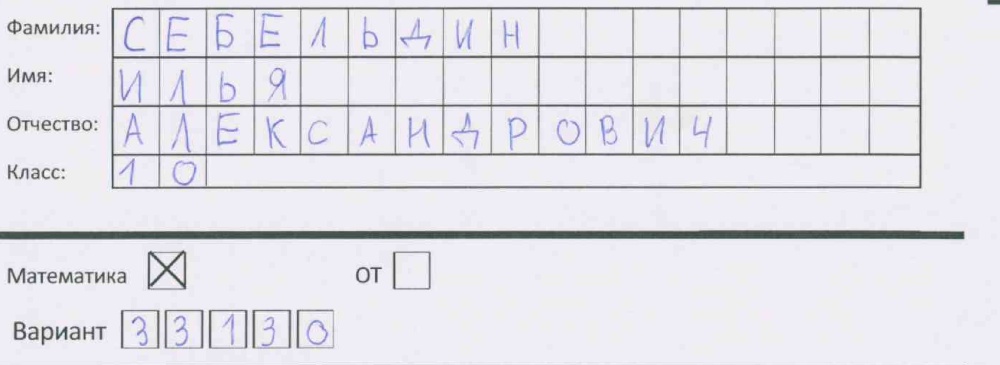 Фамилия: СЕБЕЛЬДИН
Имя: ИЛЬЯ
Отчество: АЛЕКСАНДРОВИЧ
Класс: 10
Математика ☒ ОТ ☐
Вариант 33130